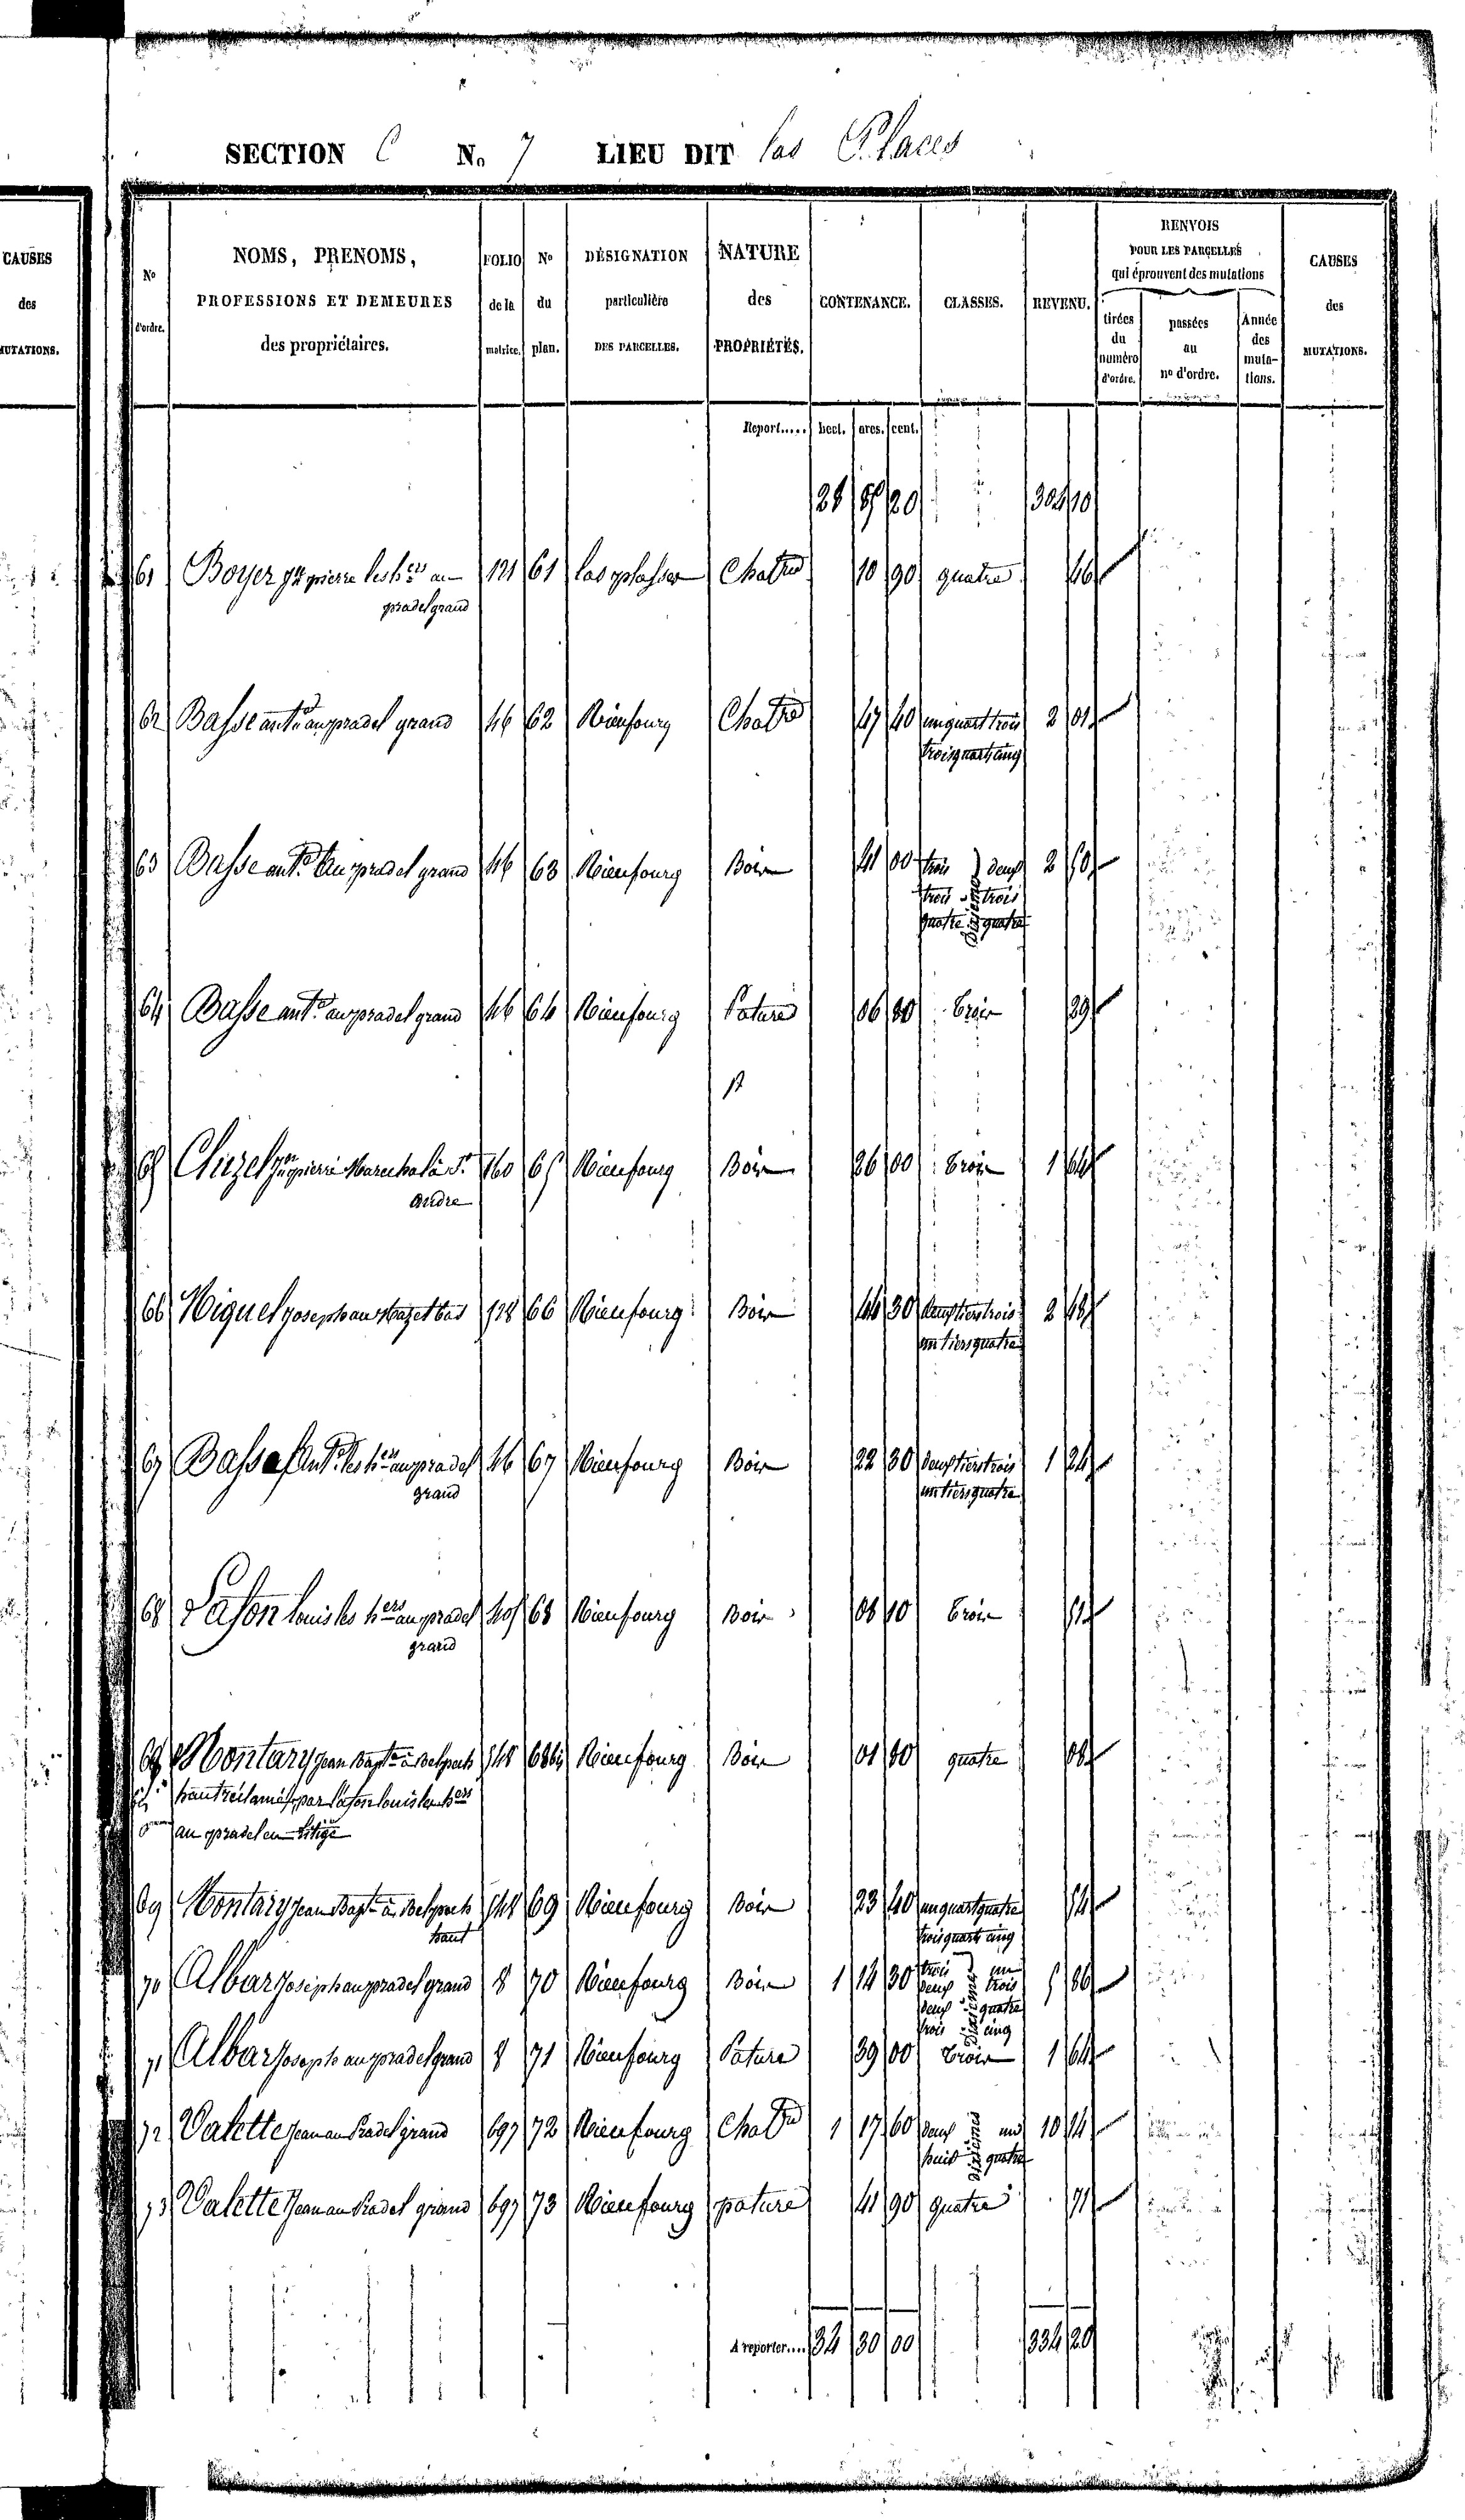 SECTION C No 7 LIEU DIT las Places
CAUSES
des
MUTATIONS.
No
d'ordre.
NOMS, PRENOMS,
PROFESSIONS ET DEMEURES
des propriétaires.
FOLIO
de la
matrice.
No
du
plan.
DÉSIGNATION
particulière
DES PARCELLES.
NATURE
des
PROPRIÉTÉS.
CONTENANCE.
CLASSES.
REVENU.
RENVOIS
POUR LES PARCELLES
qui éprouvent des mutations
tirées
du
numéro
d'ordre.
passées
au
no d'ordre.
Année
des
muta-
tions.
CAUSES
des
MUTATIONS.
Report..... hect. ares. cent.
20 304 10
61 Boyer Jn pierre les hers au 121 61 las plasses Chatrie 10 90 quatre 46
pradel grand
62 Basse ante au pradel grand 46 62 Rieufourg Chatrie 47 40 un quart trois 2 01
trois quart cinq
63 Basse ante au pradel grand 46 63 Rieufourg Bois 41 00 trois deux 2 50
trois trois
quatre quatre
dixiemes
64 Basse ante au pradel grand 46 64 Rieufourg Pature 06 80 trois 29
65 Cluzel Jn pierre Marechal a St 160 65 Rieufourg Bois 26 00 trois 1 64
Andre
66 Miquel Joseph au Mazet bas 66 Rieufourg Bois 44 30 deux tiers trois 2 48
un tiers quatre
67 Basse ante les hers au pradel 46 67 Rieufourg Bois 22 30 deux tiers trois 1 24
grand
un tiers quatre
68 Lafon louis les hers au pradel 405 68 Rieufourg Bois 08 10 trois 51
grand
69 Montary jean Bapte a Delprats 548 68 bis Rieufourg Bois 01 80 quatre 08
haut réclamé par Lafon louis les hers
au pradel en litige
69 Montary jean Bapte a Delprats 548 69 Rieufourg Bois 23 40 un quart quatre 54
haut
trois quart cinq
70 Albar Joseph au pradel grand 8 70 Rieufourg Bois 1 14 30 trois un 5 86
deux trois
deux quatre
trois cinq
dixiemes
71 Albar Joseph au pradel grand 8 71 Rieufourg Pature 39 00 trois 1 64
72 Valette Jean au Pradel grand 697 72 Rieufourg Chatrie 1 17 60 deux un 10 14
huit quatre
dixiemes
73 Valette Jean au Pradel grand 697 73 Rieufourg pature 41 90 quatre 71
A reporter.... 34 30 00 334 20